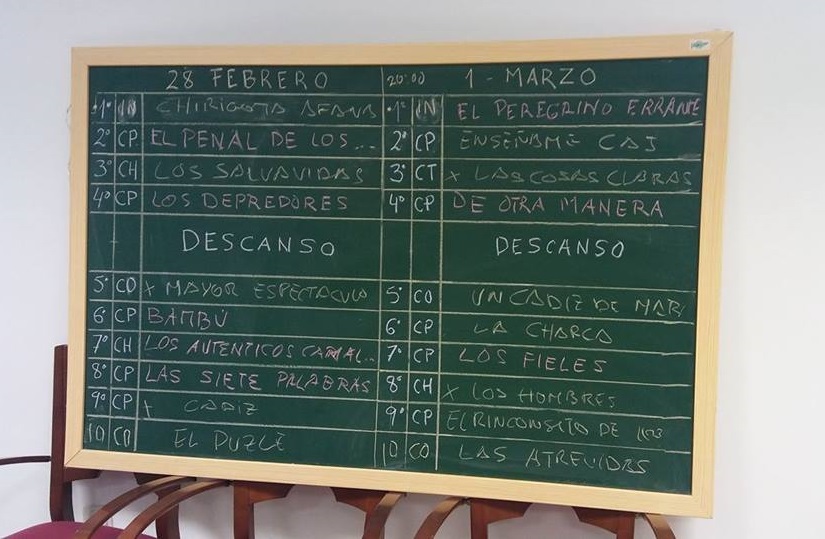 28 FEBRERO 20:00 1 - MARZO
1º IN CHIRIGOTA 1º IN EL PEREGRINO ERRANTE
2º CP EL PENAL DE LOS... 2º CP ENSEÑAME CAI
3º CH LOS SALVAVIDAS 3º CT x LAS COSAS CLARAS
4º CP LOS DEPREDORES 4º CP DE OTRA MANERA
DESCANSO DESCANSO
5º CO x MAYOR ESPECTACULO 5º CO UN CADIZ DE
6º CP BAMBÚ 6º CP LA CHARCA
7º CH LOS AUTENTICOS 7º CP LOS FIELES
8º CP LAS SIETE PALABRAS 8º CH x LOS HOMBRES
9º CP x CADIZ 9º CP EL RINCONSITO DE
10 CO EL PUZLE 10 CO LAS ATREVIDAS